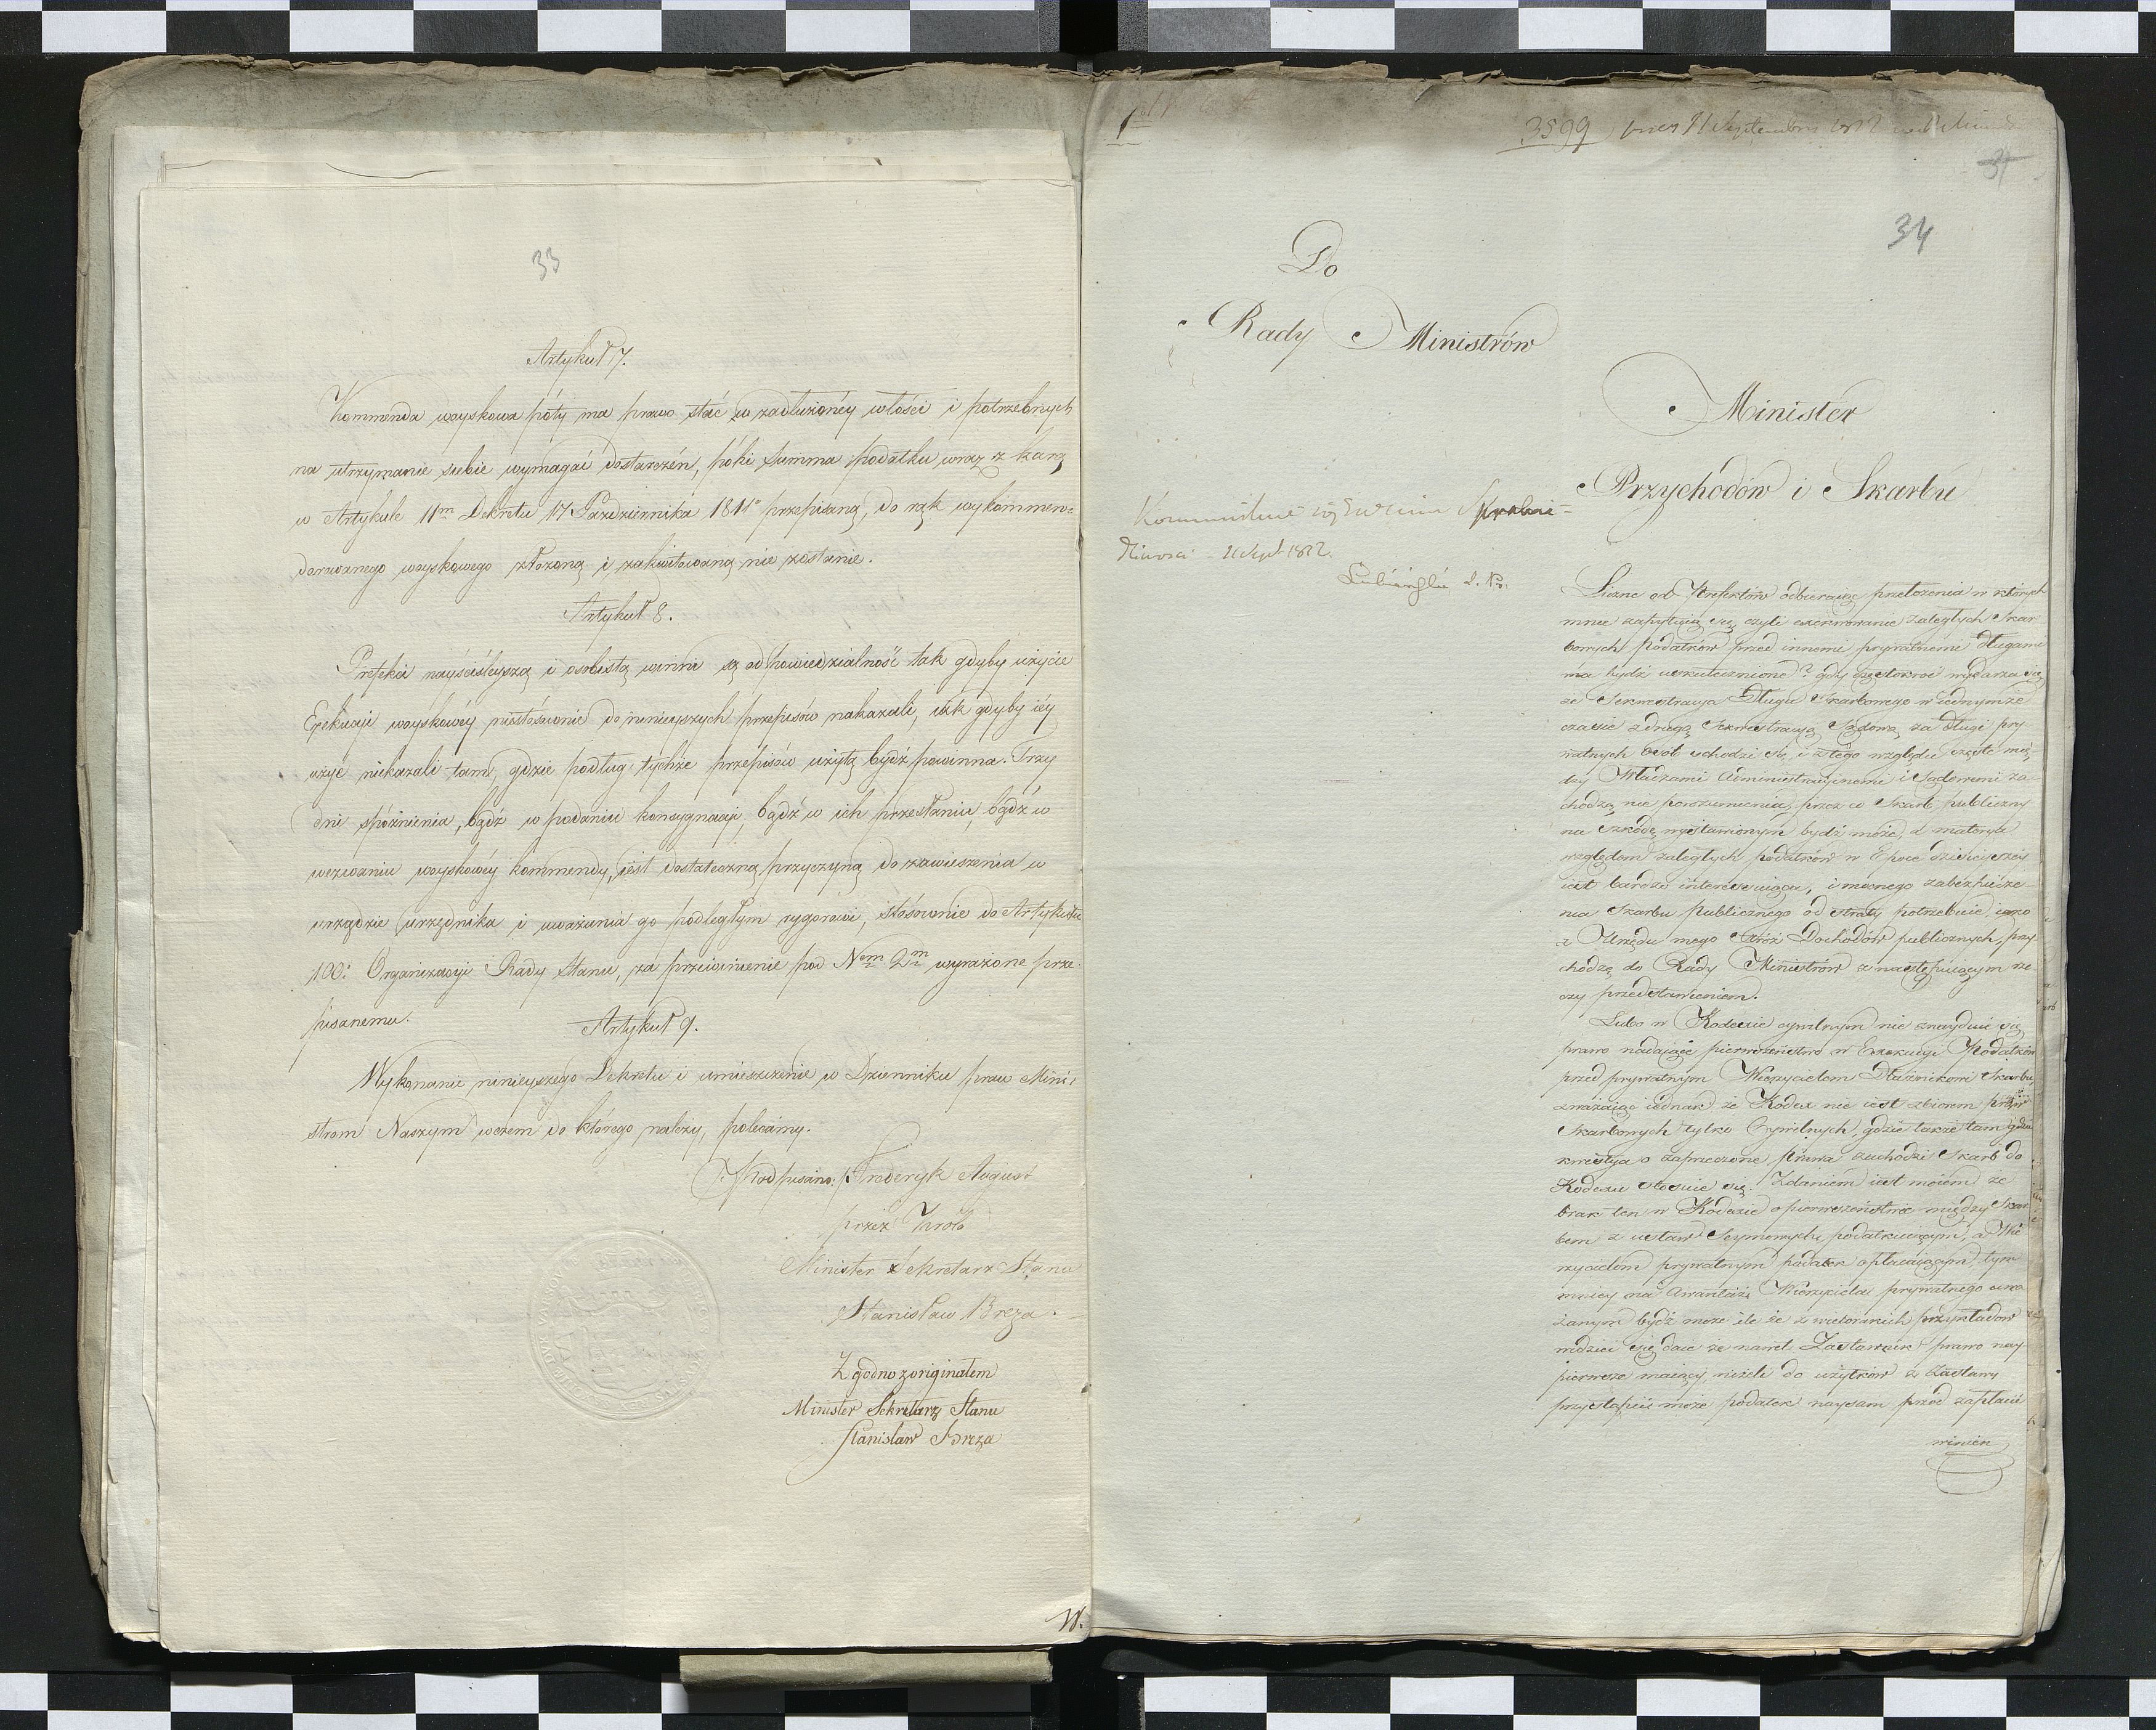 33
Artykuł 7.
Kommenda woyskowa póty ma prawo stać w zadłużonéy włości i potrzebnych
na utrzymanie siebie wymagać dostarczéń, póki summa podatku wraz z karą
w Artykule 11m Dekretu 17 Października 1811o przepisaną, do rąk wykommen=
derowanego woyskowego złożoną i zakwitowaną nie zostanie.
Artykuł 8.
Prefekci nayściśleyszą i osobistą winni są odpowiedzialność tak gdyby użycie
Exekucyi woyskowéy niestosownie do ninieyszych przepisów nakazali, iak gdyby iéy
użyć niekazali tam, gdzie podług tychże przepisów użytą bydź powinna. Trzy
dni spóźnienia, bądź w podaniu konsygnacyi, bądź w ich przesłaniu, bądź w
wezwaniu woyskowéy kommendy, iest dostateczną przyczyną do zawieszenia w
urzędzie urzędnika i uważania go podległym rygorowi, stosownie do Artykułu
100: Organizacyi Rady Stanu, za przewinienie pod Nem 2m wyrażone prze-
pisanemu.
Artykuł 9.
Wykonanie ninieyszego Dekretu i umieszczenie w Dzienniku praw Mini-
strom Naszym wczem do którego należy, polecamy.
Podpisano: Fryderyk August
przez Króla
Minister Sekretarz Stanu
Stanisław Breza.
Zgodno z originałem
Minister Sekretarz Stanu
Stanisław Breza
W.
3599
31
34
Do
Rady Ministrów
Minister
Przychodów i Skarbu
Sprawie=
dliwości 1812.
Lubieński
Liczne od Prefektów odbieraiąc przełożenia w których
mnie zapytuią się czyli exekwowanie zaległych Skar
bowych Podatków przed innemi prywatnemi Długami
ma bydź uskutecznione? gdy częstokroć wydarza się
że Sekwestracya Długu Skarbowego w iednymże
czasie z drugą Sekwestracyą Sądową za Długi pry
watnych Osób schodzi się i z tego względu częste mię
dzy Władzami Administracyjnemi i Sądowemi za-
chodzą nie porozumienia, przez co Skarb publiczny
na szkodę wystawionym bydź może, a materya
względem zaległych podatków w Epoce dzisieyszey
iest bardzo interessuiąca, i mocnego zabezpiecze-
nia Skarbu Publicznego od straty potrzebuie, iako
z Urzędu mego Stróż Dochodów publicznych, przy-
chodzę do Rady Ministrów z następuiącym rze
czy przedstawieniem.
Lubo w Kodexie cywilnym nie znayduie się
prawo nadaiące pierwszeństwo w Exekucyi Podatków
przed prywatnym Wierzycielem Dłużnikowi Skarbu,
zważaiąc iednak że Kodex nie iest zbiorem praw
Skarbowych tylko Cywilnych, gdzie także tam gdzie
kwestya o zaprzeczone Prawa zachodzi Skarb do
Kodexu stosuie się. Zdaniem iest moiem że
brak ten w Kodexie o pierwszeństwie między Skar
bem z ustaw Seymowych podatkuiącym, a Wie
rzycielem prywatnym podatek opłacaiącym, tym
mniey na awantaż Wierzyciela prywatnego uwa
żanym bydź może ile że z wielorakich przykładów
widzieć się daie że nawet Zastawnik prawo nay-
pierwsze maiący, nizeli do użytków z Zastawy
przystąpić może podatek naysam przód zapłacić
winien